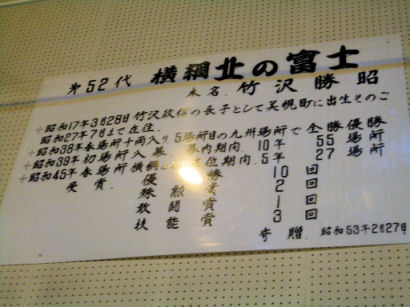 第52代 横綱北の富士
本名 竹沢勝昭
昭和17年3月28日竹沢政信の長子として美幌町に出生そのご
昭和27年7月まで在住
昭和38年春場所十両入り 5場所目の九州場所で全勝優勝
昭和39年初場所入幕 幕内期間 10年 55場所
昭和45年春場所横綱 位期間 5年 27場所
受賞 優勝 10回
殊勲賞 2回
敢闘賞 1回
技能賞 3回
寄贈 昭和53年2月27日